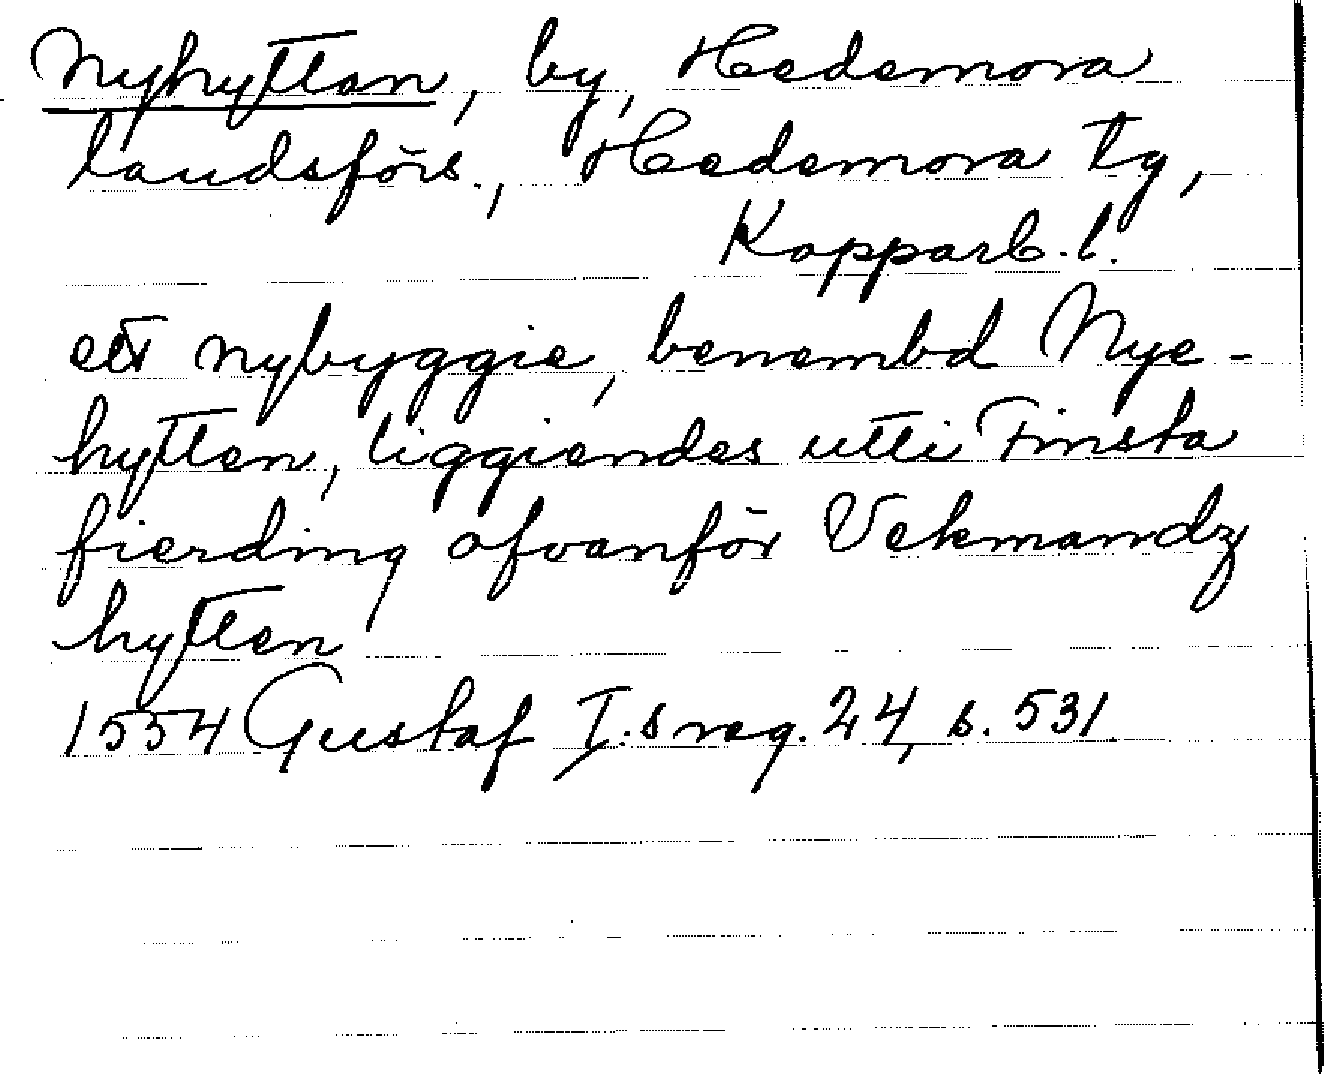 Nyhyttan, by, Hedemora
landsförs., Hedemora tg,
Kopparb. l.
ett nybyggie, benembd Nye-
hytten, liggiendes utti Tinsta
fierding ofvanför Vekmandz
hytten
1554 Gustaf I:s reg. 24, s. 531.